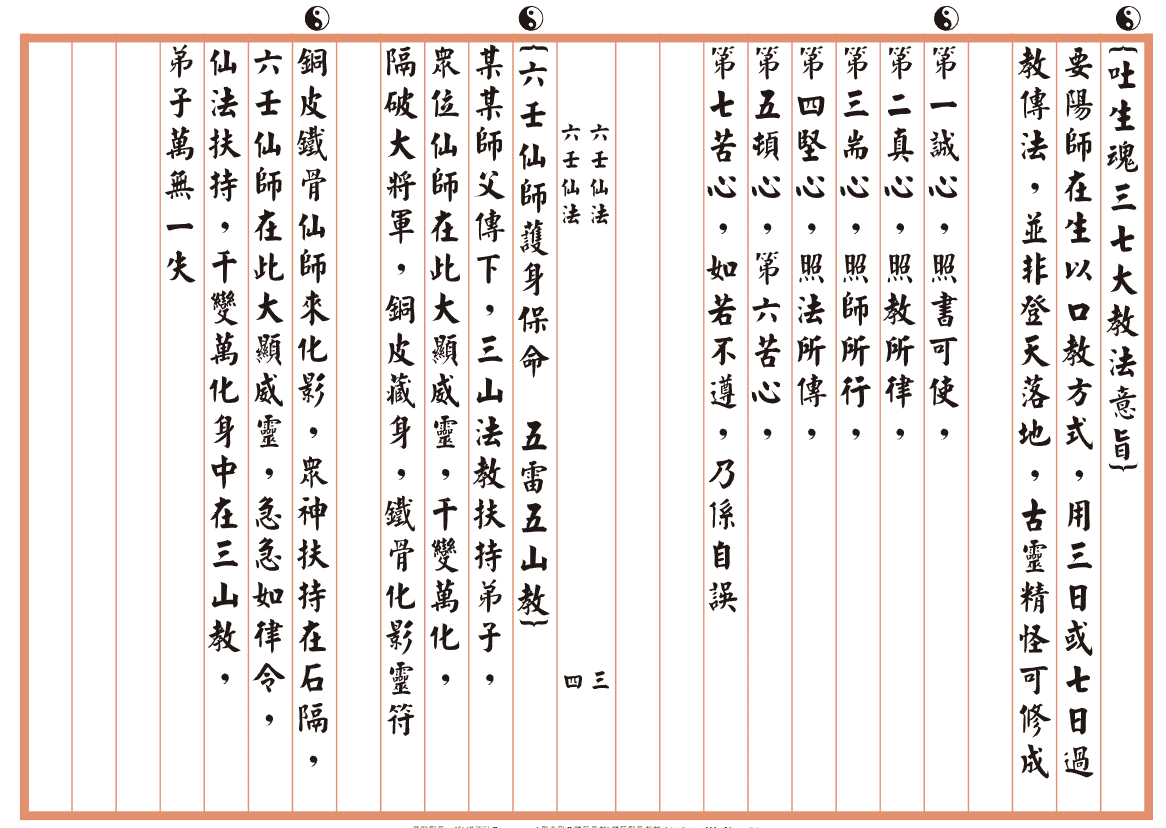 {吐生魂三七大教法意旨}
要陽師在生以口教方式，用三日或七日過
教傳法，並非登天落地，古靈精怪可修成
第一誠心，照書可使，
第二真心，照教所律，
第三耑心，照師所行，
第四堅心，照法所傳，
第五頓心，第六苦心，
第七苦心，如若不遵，乃係自誤
六壬仙法 三
六壬仙法 四
{六壬仙師護身保命　五雷五山教}
某某師父傳下，三山法教扶持弟子，
眾位仙師在此大顯威靈，千變萬化，
隔破大將軍，銅皮藏身，鐵骨化影靈符
銅皮鐵骨仙師來化影，眾神扶持在石隔，
六壬仙師在此大顯威靈，急急如律令，
仙法扶持，千變萬化身中在三山教，
弟子萬無一失